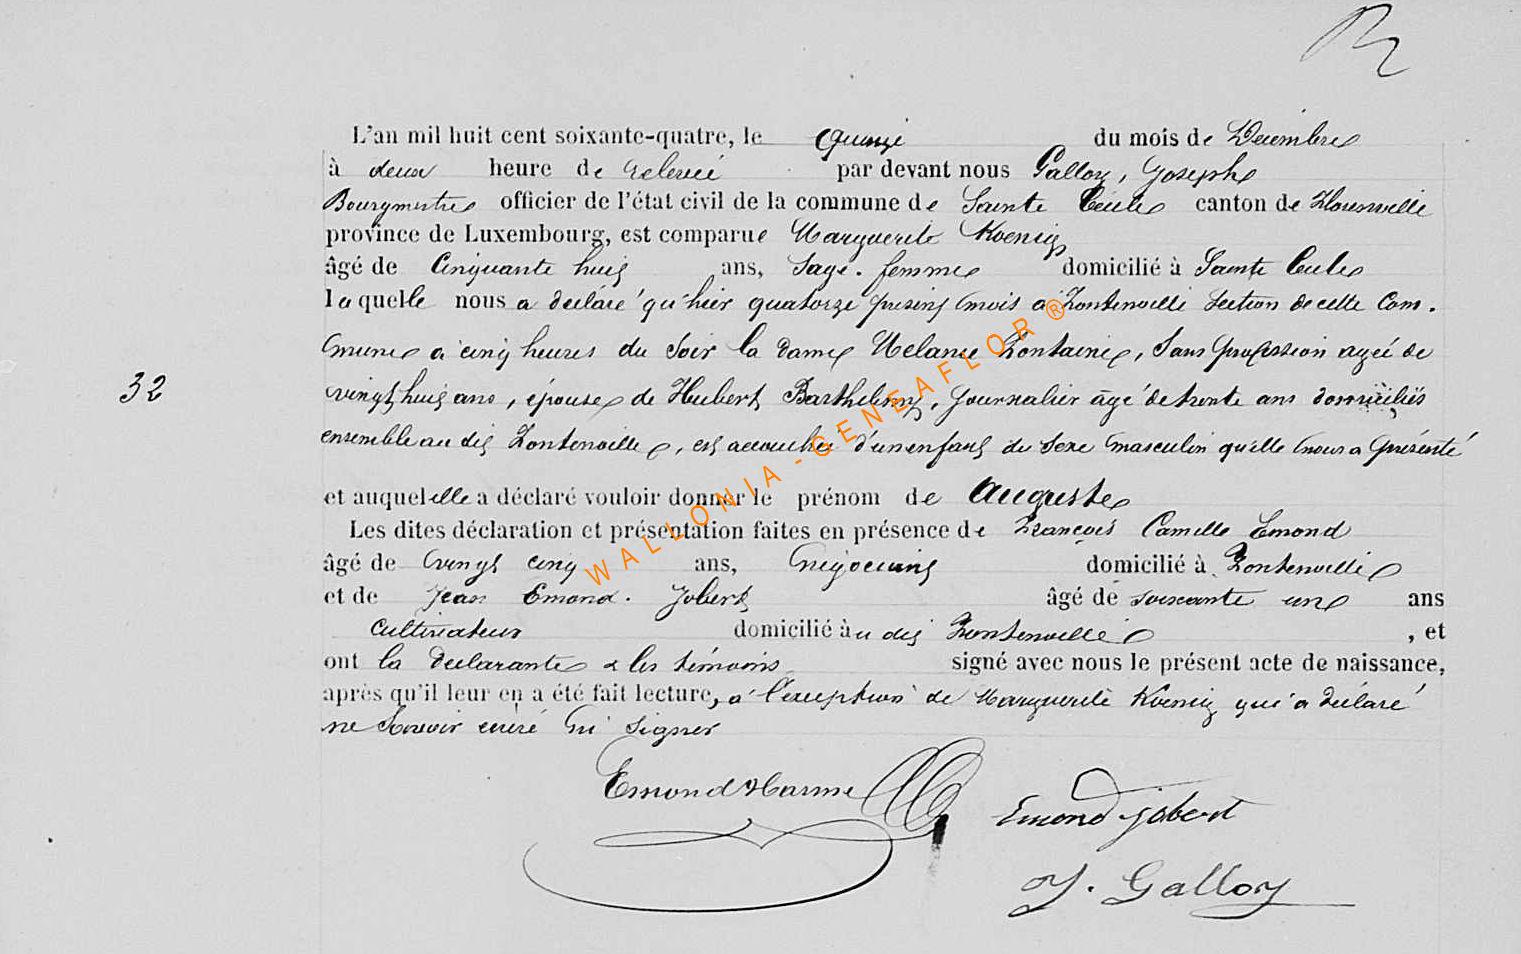 L'an mil huit cent soixante-quatre, le quinze du mois de Décembre
à deux heure de relevée par devant nous Galloy, Joseph
Bourgmestre officier de l'état civil de la commune de Sainte Cécile canton de Florenville
province de Luxembourg, est comparue Marguerite Koenig
âgé de Cinquante huit ans, Sage-femme domicilié à Sainte Cécile
laquelle nous a déclaré qu'hier quatorze présent mois à Fontenoille Section de cette Com-
mune à cinq heures du Soir la Dame Mélanie Fontaine, Sans profession agée de
vingt huit ans, épouse de Hubert Barthelemy, journalier âgé de trente ans domiciliés
ensemble au dit Fontenoille, est accouchée d'un enfant du Sexe masculin qu'elle nous a présenté
et auquel elle a déclaré vouloir donner le prénom de Auguste
Les dites déclaration et présentation faites en présence de François Camille Emond
âgé de vingt cinq ans, négociant domicilié à Fontenoille
et de Jean Emond-Jobert âgé de soixante un ans
cultivateur domicilié au dit Fontenoille, et
ont la déclarante & les témoins signé avec nous le présent acte de naissance,
après qu'il leur en a été fait lecture, à l'exception de Marguerite Koenig qui a déclaré
ne Savoir écrire ni Signer
32
Emond Harme
Emond jobert
J. Galloy
WALLONIA-GENEAFLOR®